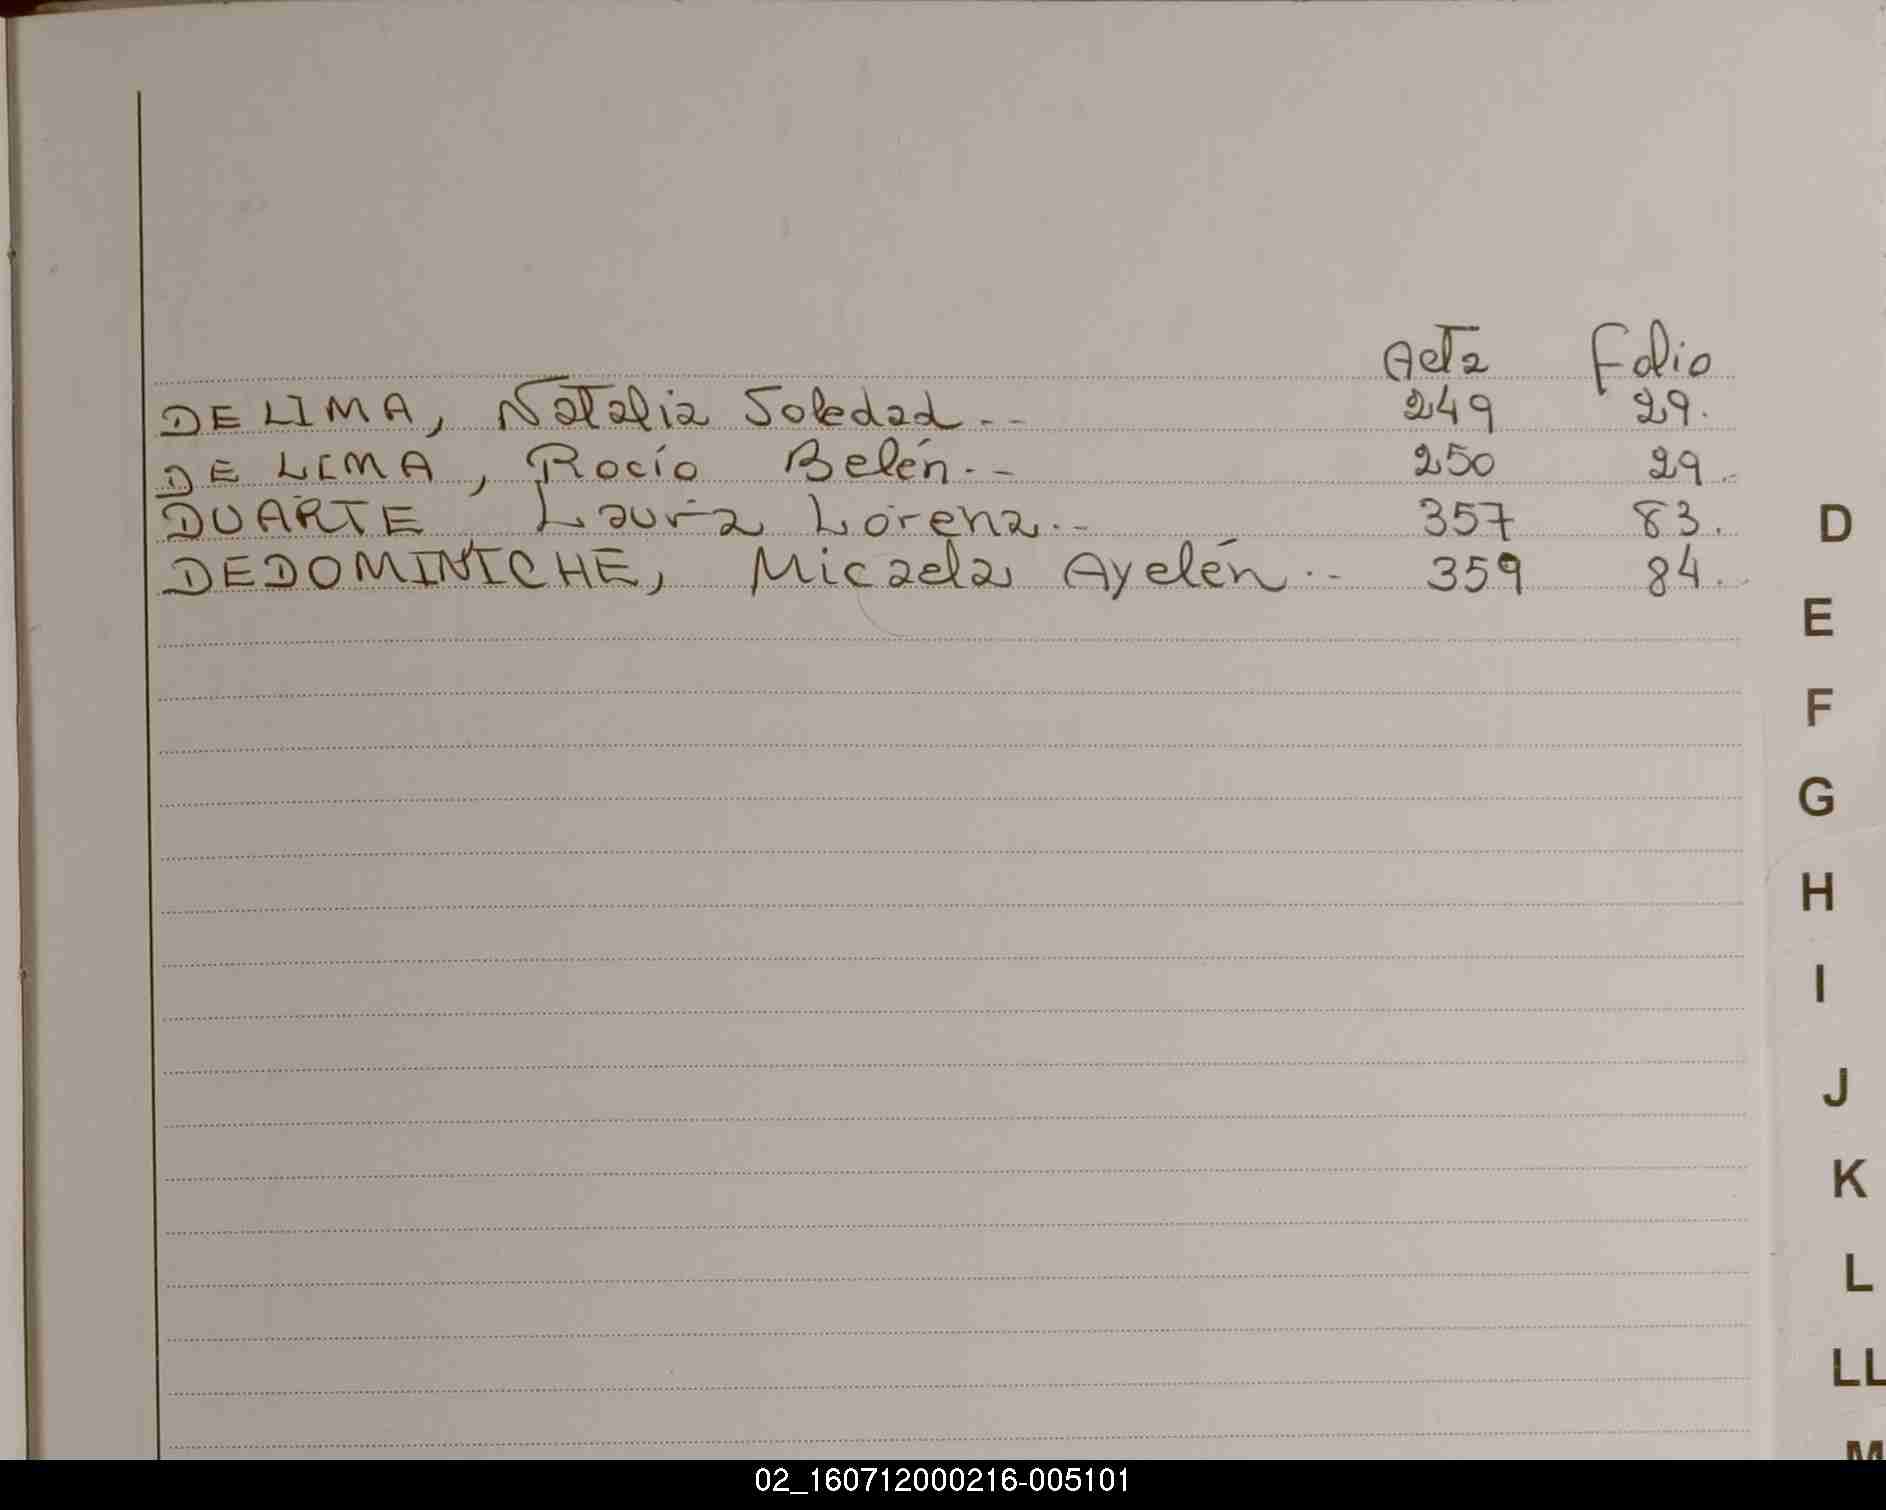 Acta Folio
DE LIMA, Natalia Soledad.-- 249 29.
DE LIMA, Rocío Belén.-- 250 29.
DUARTE Laura Lorena.-- 357 83.
DEDOMINICHE, Micaela Ayelén.-- 359 84.
D
E
F
G
H
I
J
K
L
LL
M
02_160712000216-005101